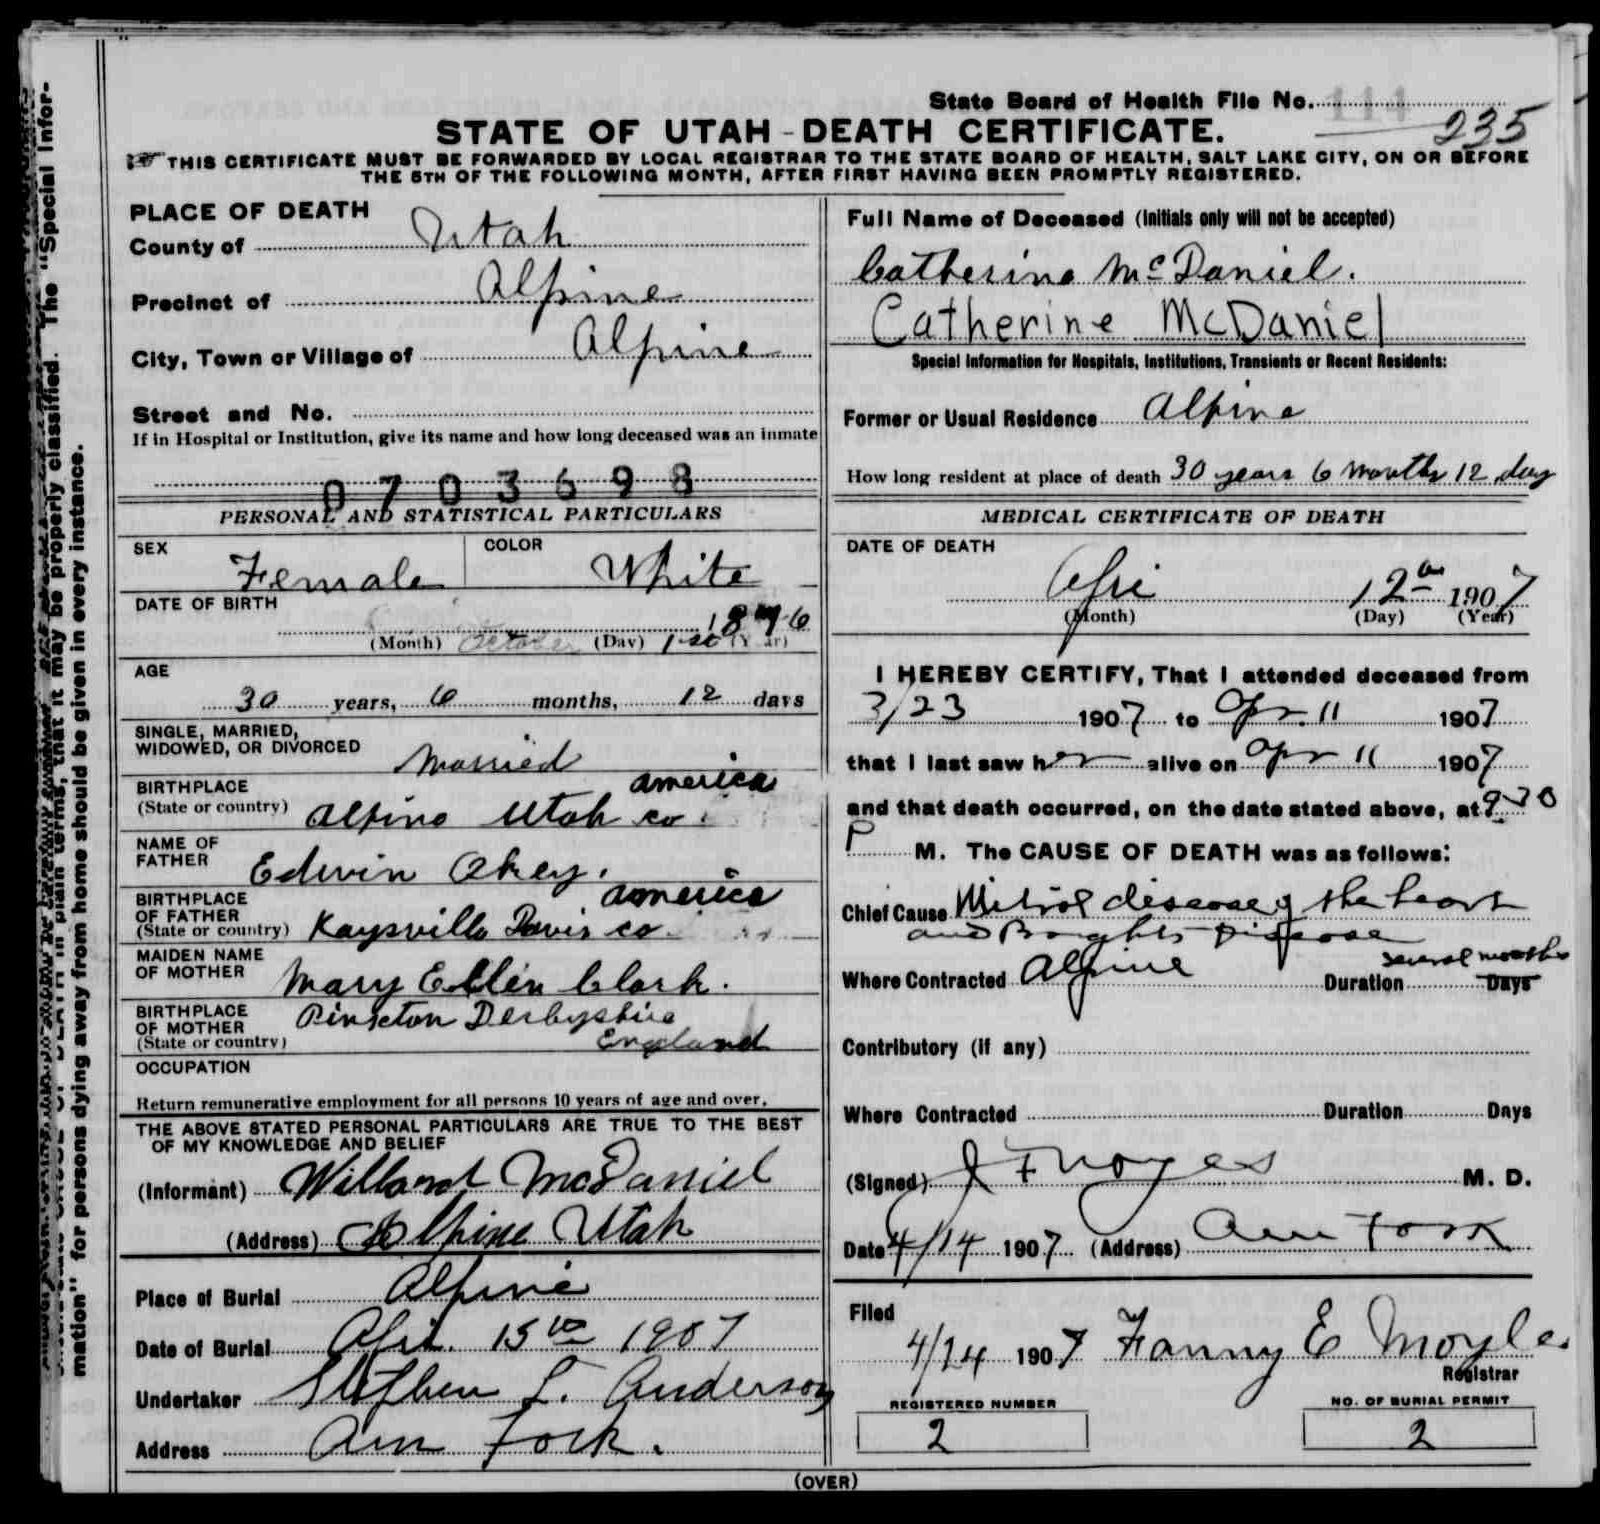 State Board of Health File No. 111
235
STATE OF UTAH - DEATH CERTIFICATE.
THIS CERTIFICATE MUST BE FORWARDED BY LOCAL REGISTRAR TO THE STATE BOARD OF HEALTH, SALT LAKE CITY, ON OR BEFORE
THE 5TH OF THE FOLLOWING MONTH, AFTER FIRST HAVING BEEN PROMPTLY REGISTERED.
PLACE OF DEATH
County of Utah
Precinct of Alpine
City, Town or Village of Alpine
Street and No.
If in Hospital or Institution, give its name and how long deceased was an inmate
0703698
PERSONAL AND STATISTICAL PARTICULARS
SEX Female COLOR White
DATE OF BIRTH 1876
(Month) October (Day) 1st (Year)
AGE
30 years, 6 months, 12 days
SINGLE, MARRIED,
WIDOWED, OR DIVORCED Married
BIRTHPLACE america
(State or country) Alpine Utah co
NAME OF
FATHER Edwin Okey.
BIRTHPLACE america
OF FATHER
(State or country) Kaysville Davis co
MAIDEN NAME
OF MOTHER Mary Ellen Clark.
BIRTHPLACE
OF MOTHER Pinxton Derbyshire
(State or country) England
OCCUPATION
Return remunerative employment for all persons 10 years of age and over.
THE ABOVE STATED PERSONAL PARTICULARS ARE TRUE TO THE BEST
OF MY KNOWLEDGE AND BELIEF
(Informant) Willard McDaniel
(Address) Alpine Utah
Place of Burial Alpine
Date of Burial Apr. 15th 1907
Undertaker Stephen L. Anderson
Address Am Fork.
Full Name of Deceased (Initials only will not be accepted)
Catherine McDaniel.
Catherine McDaniel
Special Information for Hospitals, Institutions, Transients or Recent Residents:
Former or Usual Residence Alpine
How long resident at place of death 30 years 6 months 12 day
MEDICAL CERTIFICATE OF DEATH
DATE OF DEATH
Apr 12th 1907
(Month) (Day) (Year)
I HEREBY CERTIFY, That I attended deceased from
3/23 1907 to Apr. 11 1907
that I last saw her alive on Apr 11 1907
and that death occurred, on the date stated above, at 930
P M. The CAUSE OF DEATH was as follows:
Chief Cause Mitral disease of the heart
and Brights Disease
several months
Where Contracted Alpine Duration Days
Contributory (if any)
Where Contracted Duration Days
(Signed) J F Noyes M. D.
Date 4/14 1907 (Address) Am Fork
Filed
4/24 1907 Fanny E Moyle
Registrar
REGISTERED NUMBER
2
NO. OF BURIAL PERMIT
2
(OVER)
The "Special Infor-
that it may be properly classified.
mation" for persons dying away from home should be given in every instance.